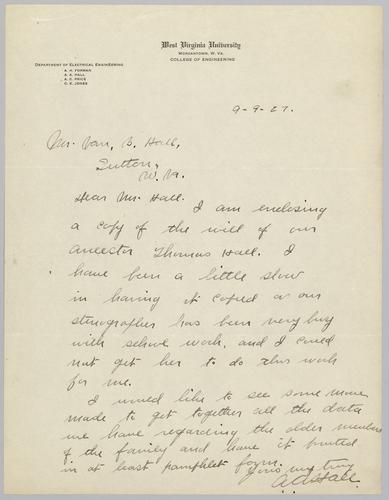 West Virginia University
Morgantown, W. Va.
COLLEGE OF ENGINEERING
DEPARTMENT OF ELECTRICAL ENGINEERING
A. H. FORMAN
A. A. HALL
A. C. PRICE
C. E. JONES
9-9-27.
Mr. Van, B. Hall,
Sutton,
W. Va.
Dear Mr. Hall.
I am enclosing
a copy of the will of our
ancestor Thomas Hall. I
have been a little slow
in having it copied as our
stenographer has been very busy
with school work, and I could
not get her to do this work
for me.
I would like to see some move
made to get together all the data
we have regarding the older members
of the family and have it printed
in at least pamphlet form.
Yours very truly
A A Hall.